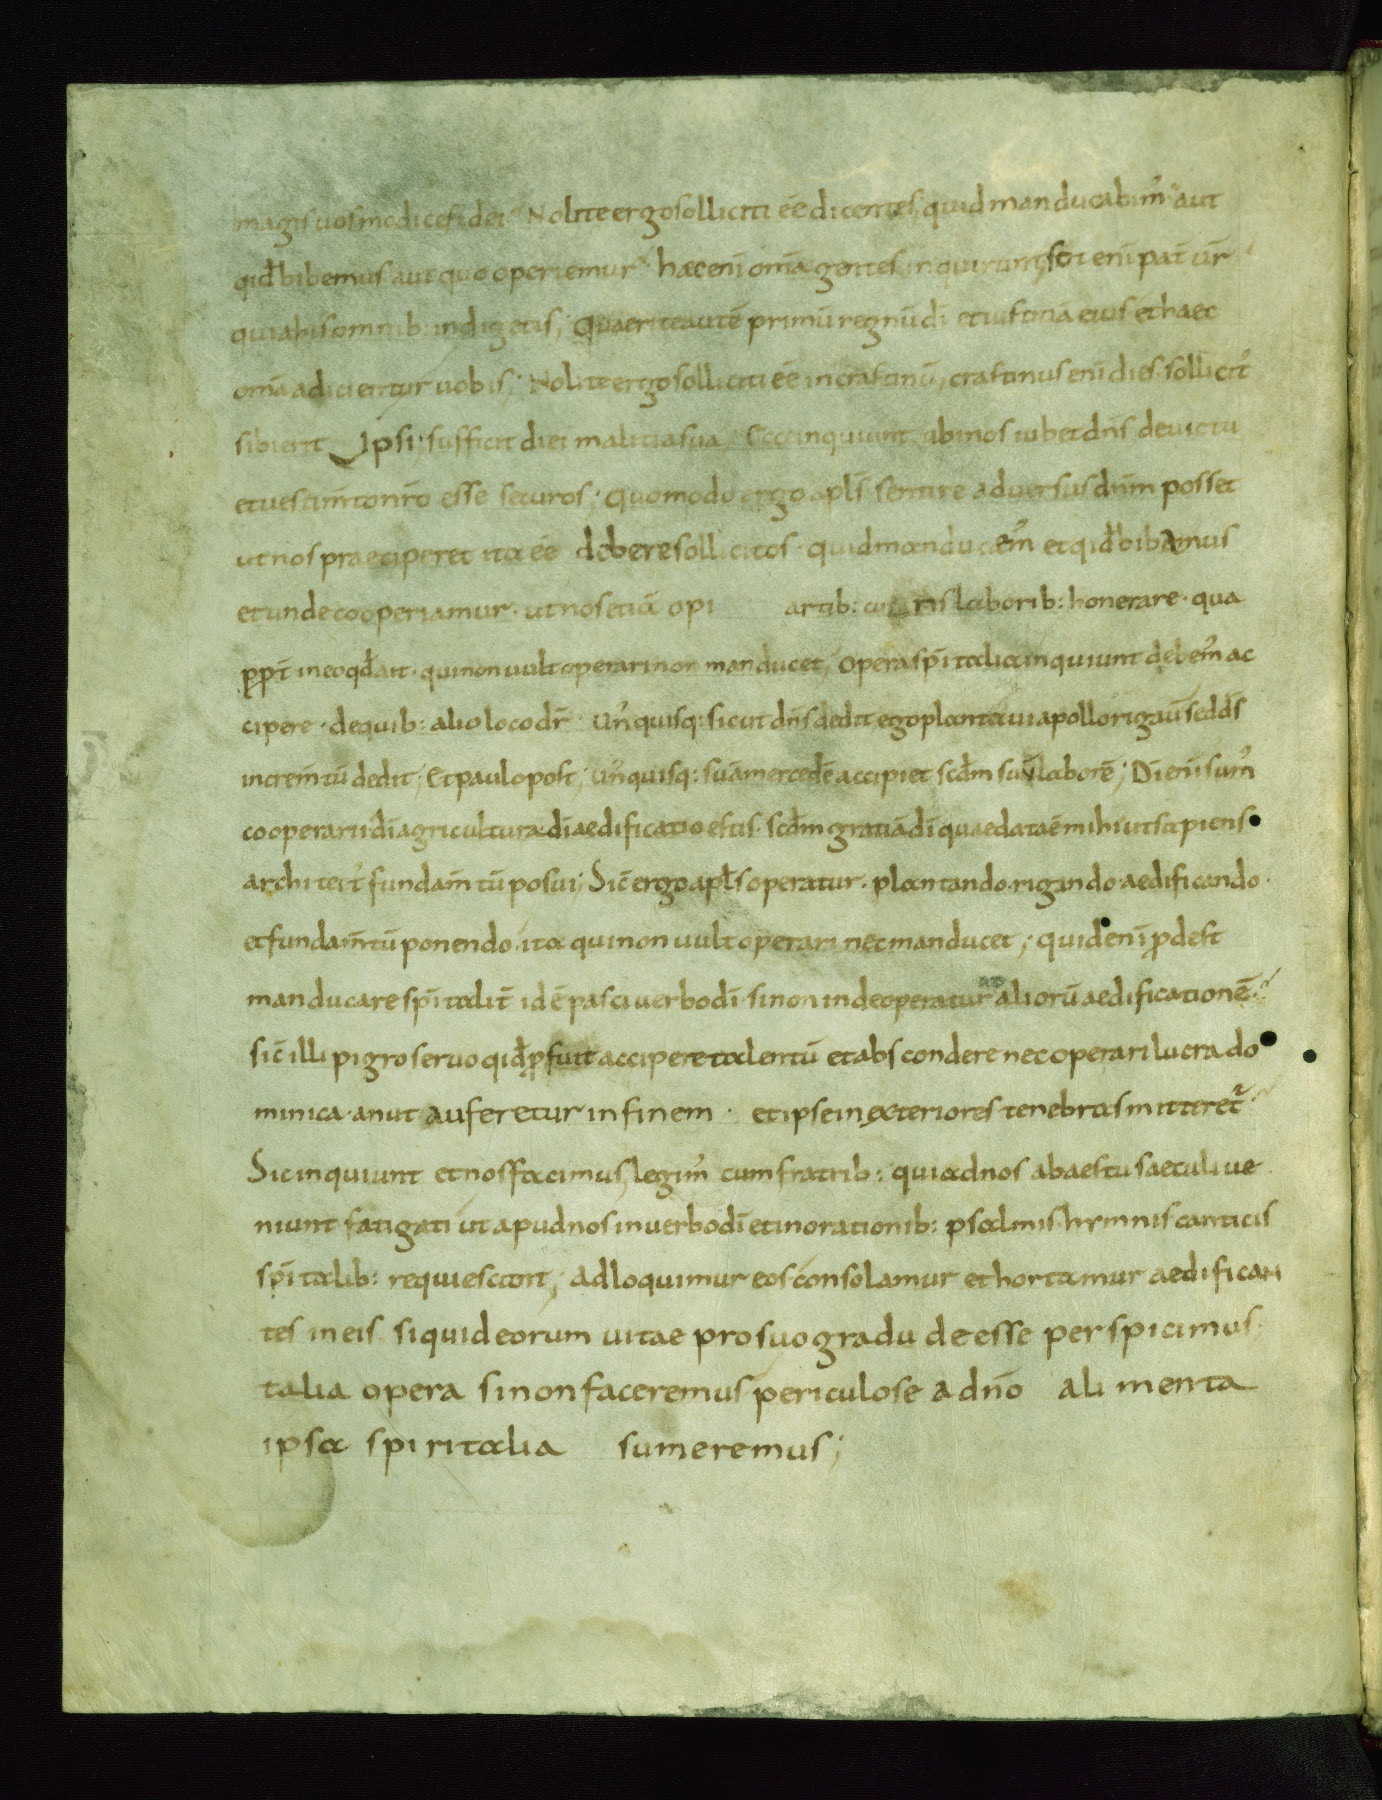 magis vos modicę fidei Nolite ergo solliciti ee̅ dicentes, quid manducabim᾽ aut
qid̅ bibemus aut quo operiemur haec eni̅ om̅a gentes inquirunt, scit eni̅ pat̅ ur̅
quia his omnib: indigetis; Quaerite aute̅ primu̅ regnu̅ di̅ et iustitia̅ eius et haec
om̅a adicientur vobis; Nolite ergo solliciti ee̅ in crastinu̅, crastinus eni̅ dies sollicit᾽
sibi erit Ipsi; sufficit diei malitia sua Ecce inquiunt ubi nos iubet dn̅s de victu
et vestim̅to nr̅o esse securos; quomodo ergo apls̅ sentire adversus dn̅m posset
ut nos praeciperet ita ee̅ debere sollicitos quid manducem᾽ et qid̅ bibamus
et unde cooperiamur ut nos etia̅ opi artib: laborib: honerare qua
ꝓpt̅ in eo qd̅ ait qui non vult operari non manducet; Opera spi̅talia inquiunt debem᾽ ac
cipere de quib: alio loco dr̅ Un᾽quisq: sicut dn̅s dedit ego plantavi apollo rigau̅ sed ds̅
increm̅tu̅ dedit; Et paulo post; un᾽quisq: sua̅ mercede̅ accipiet scdm̅ suu̅ labore̅; Di̅ eni̅ sum᾽
cooperarii di̅ agricultura di̅ aedificatio estis scdm̅ gratia̅ di̅ quae data e̅ mihi ut sapiens
architect᾽ fundam̅tu̅ posui; Sic̅ ergo apls̅ operatur plantando rigando aedificando
et fundam̅tu̅ ponendo ita qui non vult operari nec manducet; quid eni̅ ꝓdest
manducare spi̅talit̅ ide̅ pasci verbo di̅ si non inde operatur ad alioru̅ aedificatione̅
sic̅ illi pigro servo qid̅ ꝓfuit accipere talentu̅ et abscondere nec operari lucra do
minica an ut auferetur in finem et ipse in exteriores tenebras mitteret᷑
Sic inquiunt et nos facimus, legim᾽ cum fratrib: qui ad nos ab aestu saeculi ve
niunt fatigati ut apud nos in verbo di̅ et in orationib: psalmis hymnis canticis
spi̅talib: requiescant; Adloquimur eos consolamur et hortamur aedifican
tes in eis siquid eorum vitae pro suo gradu deesse perspicimus
talia opera si non faceremus periculose a dn̅o alimenta
ipsa spiritalia sumeremus;